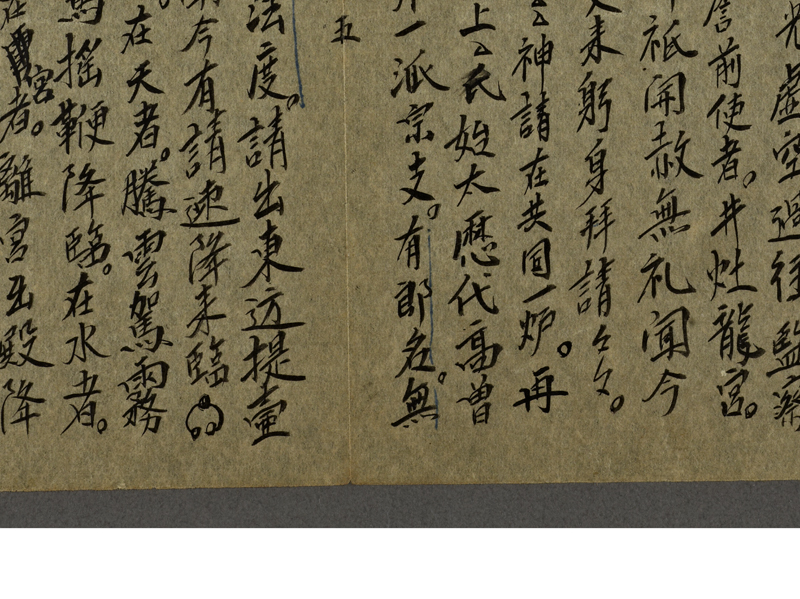 光虛空過往監察
詹前使者。井灶龍宮。
祇開赦無礼闻今
来躬身拜請々文。
神請在共囬一炉。再
上ㄙ氏始太歷代高曽
一派宗支。有郎名。無
五
法度。請出東边提壷
今有請速降来臨
在天者。騰雲駕雨霧
馬摇鞭降臨。在水者。
宮者。離宮出殿降